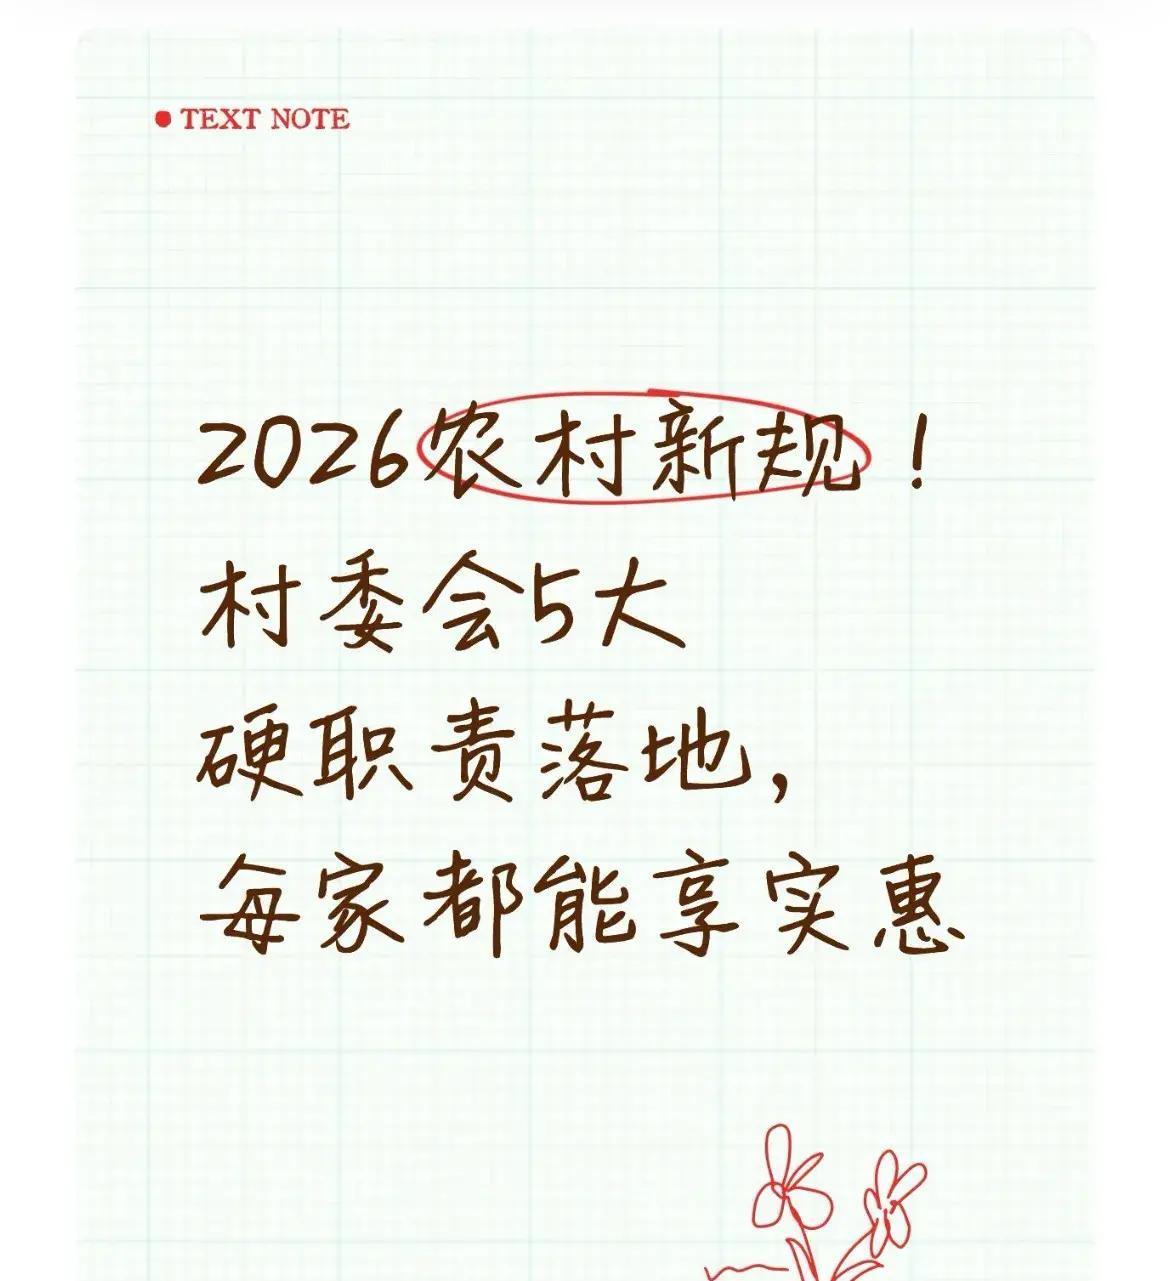 TEXT NOTE
2026农村新规！
村委会5大
硬职责落地，
每家都能享实惠